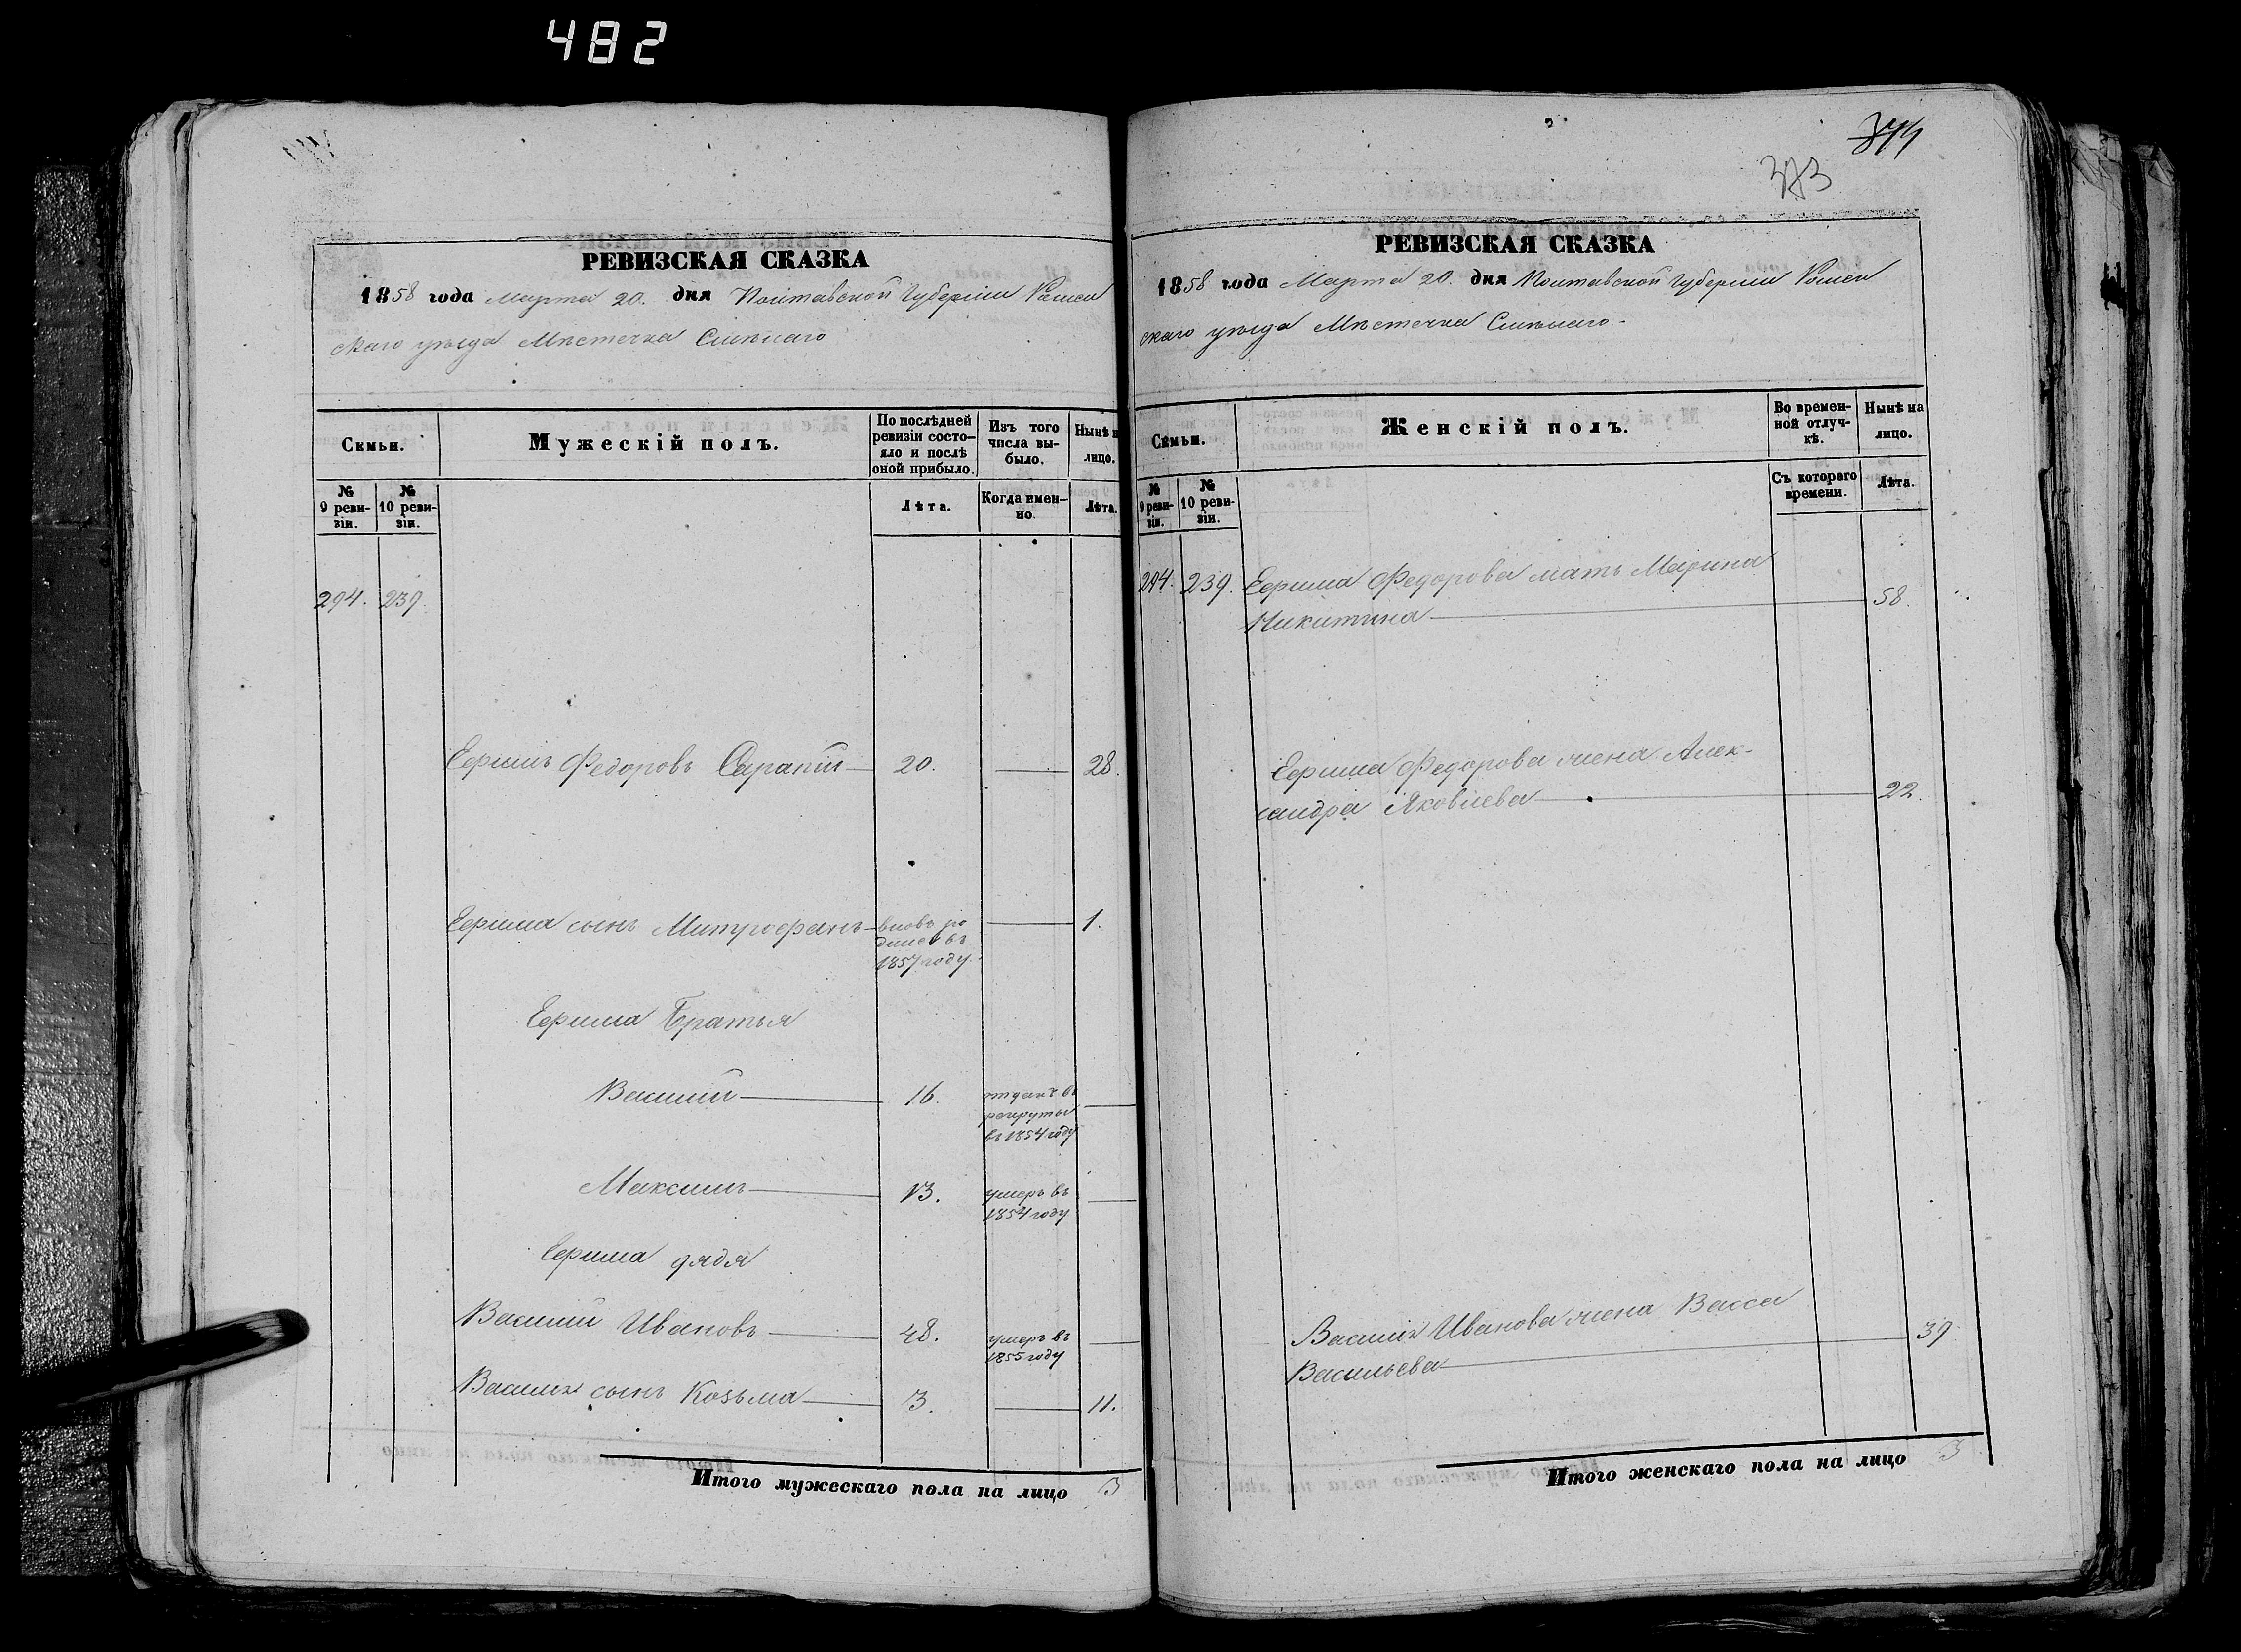 482
374
373
РЕВИЗСКАЯ СКАЗКА
1858 года Марта 20. дня Полтавской Губернии Ромен
скаго уѣзда Мѣстечка Смѣлаго
Семьи.
Мужескій полъ.
По послѣдней
ревизіи состо-
яло и послѣ
оной прибыло.
Изъ того
числа вы-
было.
Нынѣ н
лицо.
№
9 реви-
зіи.
№
10 реви-
зіи.
Лѣта.
Когда имен-
но.
Лѣта.
294. 239.
Ефимъ Федоровъ 20. 28.
Ефима сынъ Митрофанъ вновь ро 1.
дился въ
1857 году.
Ефима Братья
Василій 16. отданъ въ
рекруты
въ 1854 году
Максимъ 13. умеръ въ
1854 году
Ефима дядя
Василій Ивановъ 48. умеръ въ
1855 году
Василія сынъ Козьма 3. 11.
Итого мужескаго пола на лицо 3
РЕВИЗСКАЯ СКАЗКА
1858 года Марта 20. дня Полтавской Губерніи Ромен
скаго уѣзда Мѣстечка Смѣлаго
Семьи.
Женскій полъ.
Во времен-
ной отлуч-
кѣ.
Нынѣ на
лицо.
№
9 реви-
зіи.
№
10 реви-
зіи.
Съ котораго
времени.
Лѣта.
294. 239. Ефима Федорова мать Марина
Никитина 58.
Ефима Федорова жена Алек-
сандра Яковлева 22.
Василія Иванова жена Васса
Васильева 39
Итого женскаго пола на лицо 3